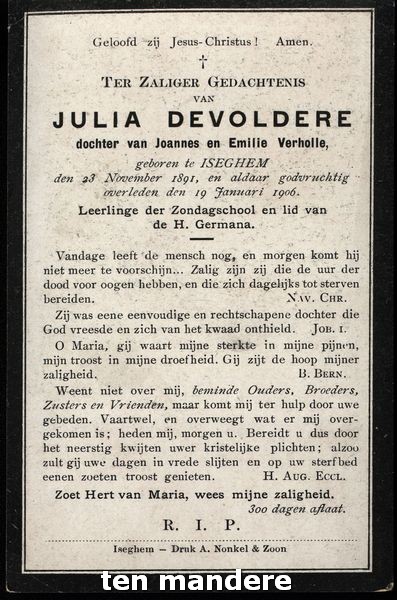 Geloofd zij Jesus-Christus! Amen.
†
TER ZALIGER GEDACHTENIS
VAN
JULIA DEVOLDERE
dochter van Joannes en Emilie Verholle,
geboren te ISEGHEM
den 23 November 1891, en aldaar godvruchtig
overleden den 19 Januari 1906.
Leerlinge der Zondagschool en lid van
de H. Germana.
Vandage leeft de mensch nog, en morgen komt hij
niet meer te voorschijn... Zalig zijn zij die de uur der
dood voor oogen hebben, en die zich dagelijks tot sterven
bereiden. NAV. CHR.
Zij was eene eenvoudige en rechtschapene dochter die
God vreesde en zich van het kwaad onthield. JOB. I.
O Maria, gij waart mijne sterkte in mijne pijnen,
mijn troost in mijne droefheid. Gij zijt de hoop mijner
zaligheid. B. BERN.
Weent niet over mij, beminde Ouders, Broeders,
Zusters en Vrienden, maar komt mij ter hulp door uwe
gebeden. Vaartwel, en overweegt wat er mij over-
gekomen is; heden mij, morgen u. Bereidt u dus door
het neerstig kwijten uwer kristelijke plichten; alzoo
zult gij uwe dagen in vrede slijten en op uw sterfbed
eenen zoeten troost genieten. H. AUG. ECCL.
Zoet Hert van Maria, wees mijne zaligheid.
300 dagen aflaat.
R. I. P.
Iseghem – Druk A. Nonkel & Zoon
ten mandere